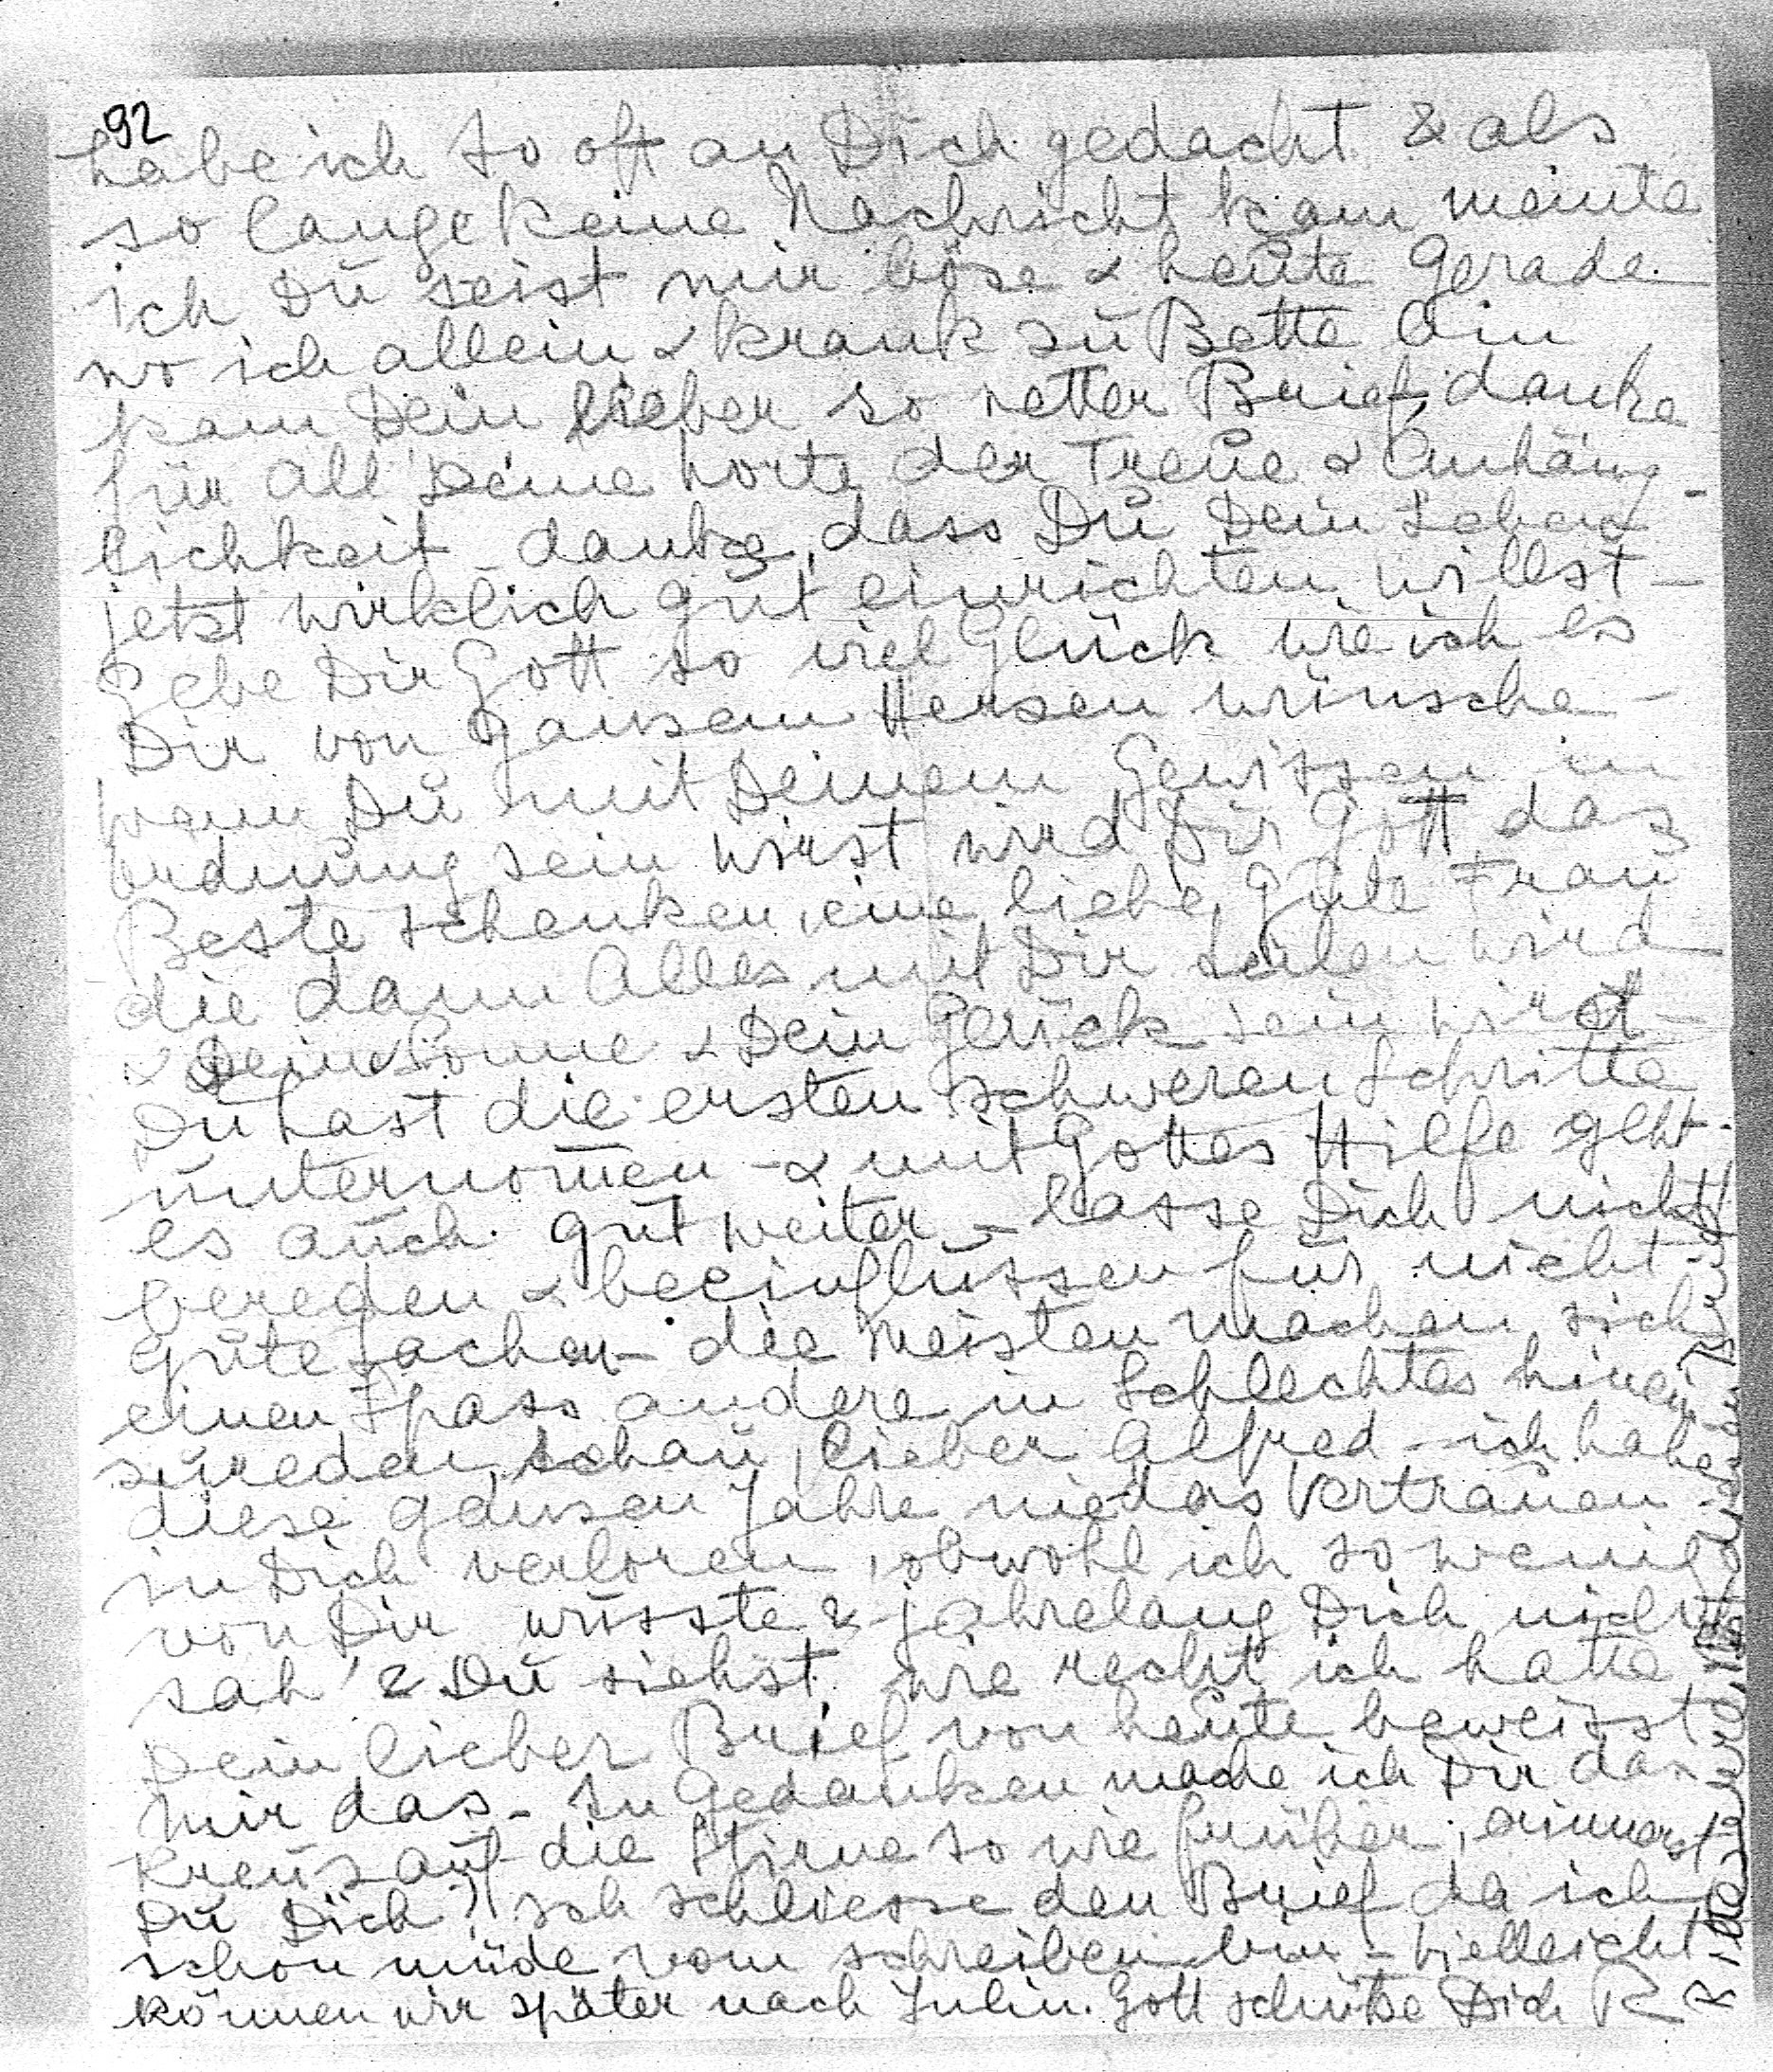 92
habe ich so oft an Dich gedacht & als
so lange keine Nachricht kam meinte
ich Dū seist mir böse & heūte gerade
wo ich allein & krank zū Bette bin
kam Dein lieber so netter Brief, danke
für all' Deine Worte der Treūe & Anhäng-
lichkeit danke, dass Dū Dein Leben
jetzt wirklich gūt einrichten willst -
Gebe Dir Gott so viel Glück wie ich es
Dir von ganzem Herzen wünsche -
wenn Dū mit Deinem Gewissen in
Ordnūng sein wirst wird Dir Gott das
Beste schenken, eine liebe, gūte Fraū
die dann Alles mit Dir teilen wird
& Deine Sonne & Dein Glück sein wird -
Dū hast die ersten schweren Schritte
ūnternom̄en - & mit Gottes Hilfe geht
es aūch gūt weiter - lasse Dich nicht
bereden & beeinflūssen für nicht
gūte Sachen - die meisten machen sich
einen Spass andere in Schlechtes hinein
zūreden, schaū, lieber Alfred - ich habe
diese ganzen Jahre nie das Vertraūen
in Dich verloren, obwohl ich so wenig
von Dir wūsste & jahrelang Dich nicht
sah' & Dū siehst, wie recht ich hatte
Dein lieber Brief von heūte beweisst
mir das - In Gedanken mache ich Dir das
Kreūz aūf die Stirne so wie früher, erinnerst
Dū Dich? Ich schliesse den Brief da ich
schon müde vom schreiben bin - vielleicht
können wir später nach Julin. Gott schütze Dich R
lieben Brief